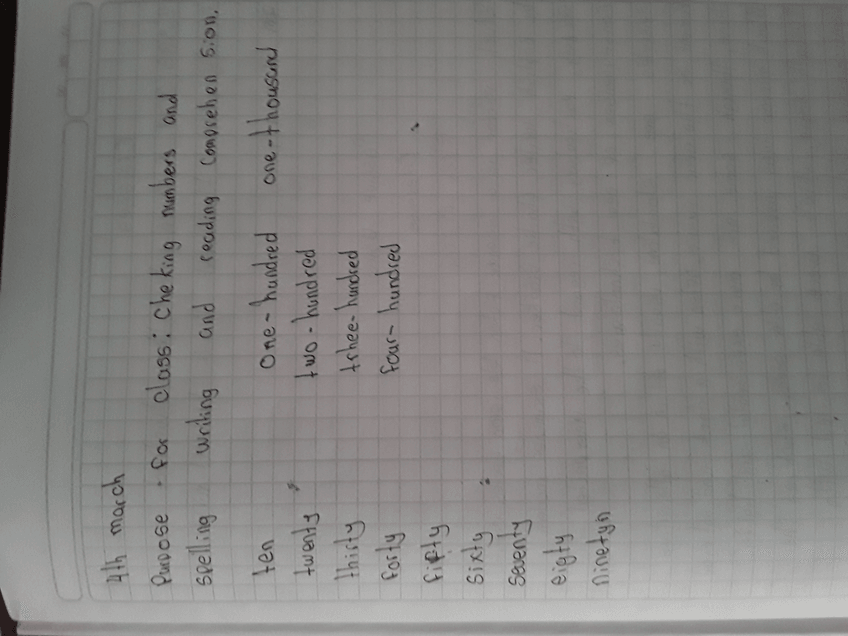 4th march
Purpose for class: cheking numbers and
spelling writing and reading comprehen sion.
ten one-hundred one-thousand
twenty two-hundred
thirty trhee-hundred
forty four-hundred
fifty
sixty
seventy
eigty
ninetyn